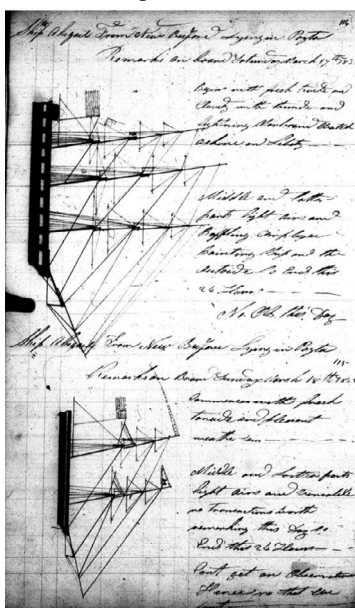 Ship Abigail From New Bedford Lying in Payta
Remarks on board Saturday March 17th
Begins with fresh trade and
Cloudy with thunder and
lightning Starboard Watch
ashore on Liberty
Middle and latter
parts light airs and
Baffling employed
painting Ship and the
outside So End this
24 Hours
No Obs this Day
Ship Abigail From New Bedford Lying in Payta
Remarks on Board Sunday March 18th
Commences with fresh
trade and pleasant
weather
Middle and latter parts
light airs and variable
no transactions worth
remarking this Day So
End this 24 Hours
Cant get an Observation